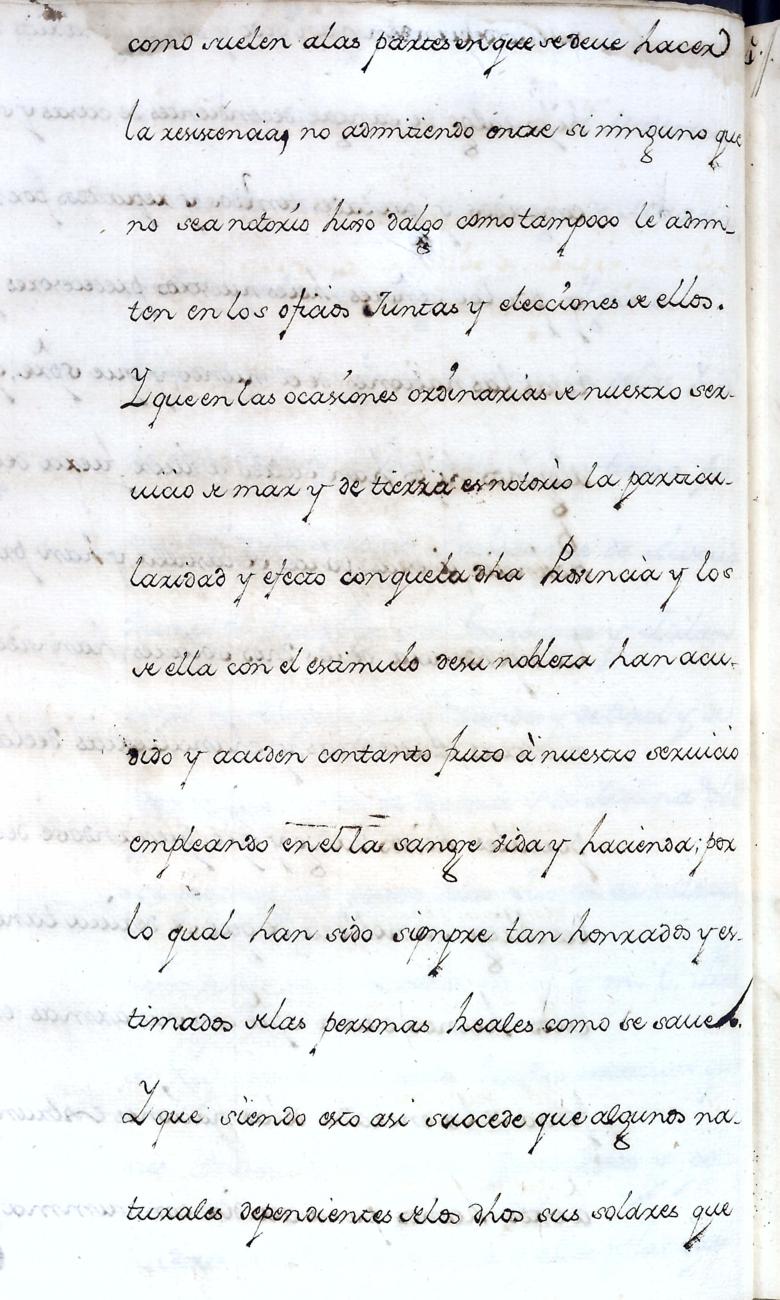 como suelen alas partes en que se deve hacer
la resistencia, no admitiendo entre si ninguno que
no sea notorio hijo dalgo como tampoco le admi-
ten en los oficios Juntas y elecciones de ellos.
Y que en las ocasiones ordinarias de nuestro ser-
uicio de mar y de tierra es notorio la particu-
laridad y efecto con que la dha Provincia y los
de ella con el estimulo de su nobleza han acu-
dido y acuden con tanto fruto à nuestro seruicio
empleando en el la sangre vida y hacienda; por
lo qual han sido sienpre tan honrados y es-
timados de las personas Reales como se saue.
Y que siendo esto asi succede que algunos na-
turales dependientes de los dhos sus solares que